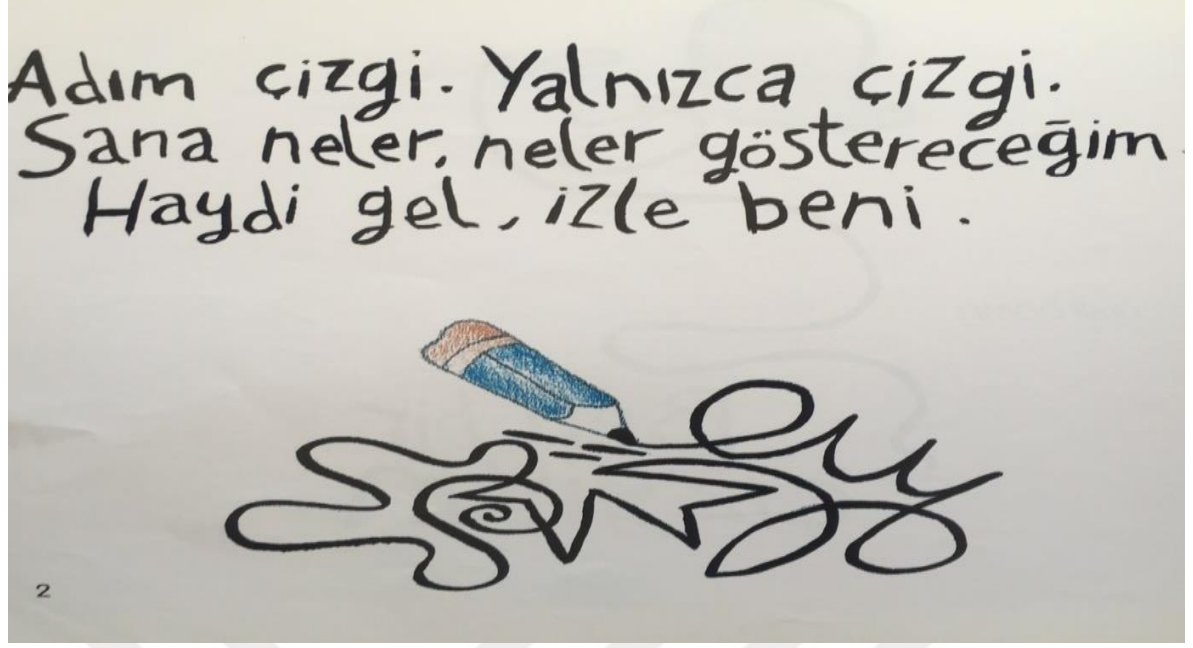 Adım çizgi. Yalnızca çizgi.
Sana neler, neler göstereceğim.
Haydi gel, izle beni.
2